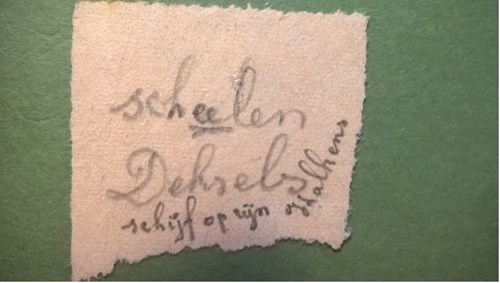 scheelen
Deksels
schijf op zijn